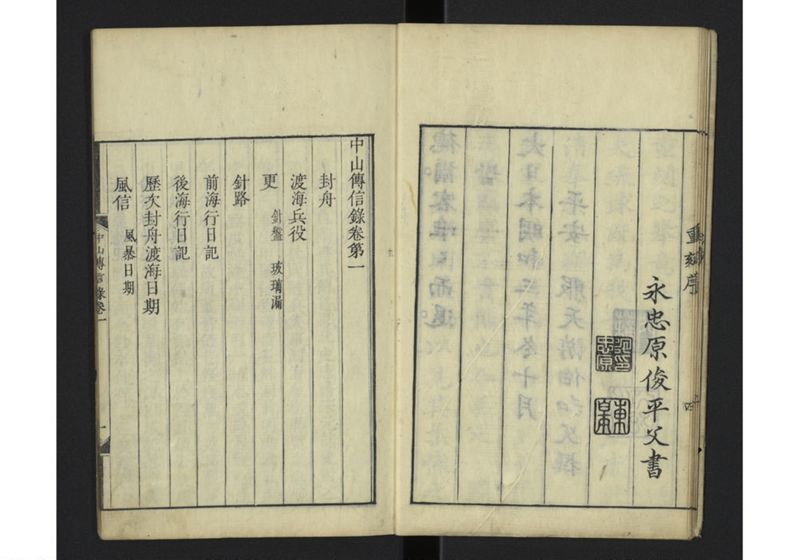 重刻序
永忠原俊平父書
中山傳信錄卷第一
封舟
渡海兵役
更 針盤 玻璃漏
針路
前海行日記
後海行日記
歷次封舟渡海日期
風信 風暴日期
中山傳信錄卷一